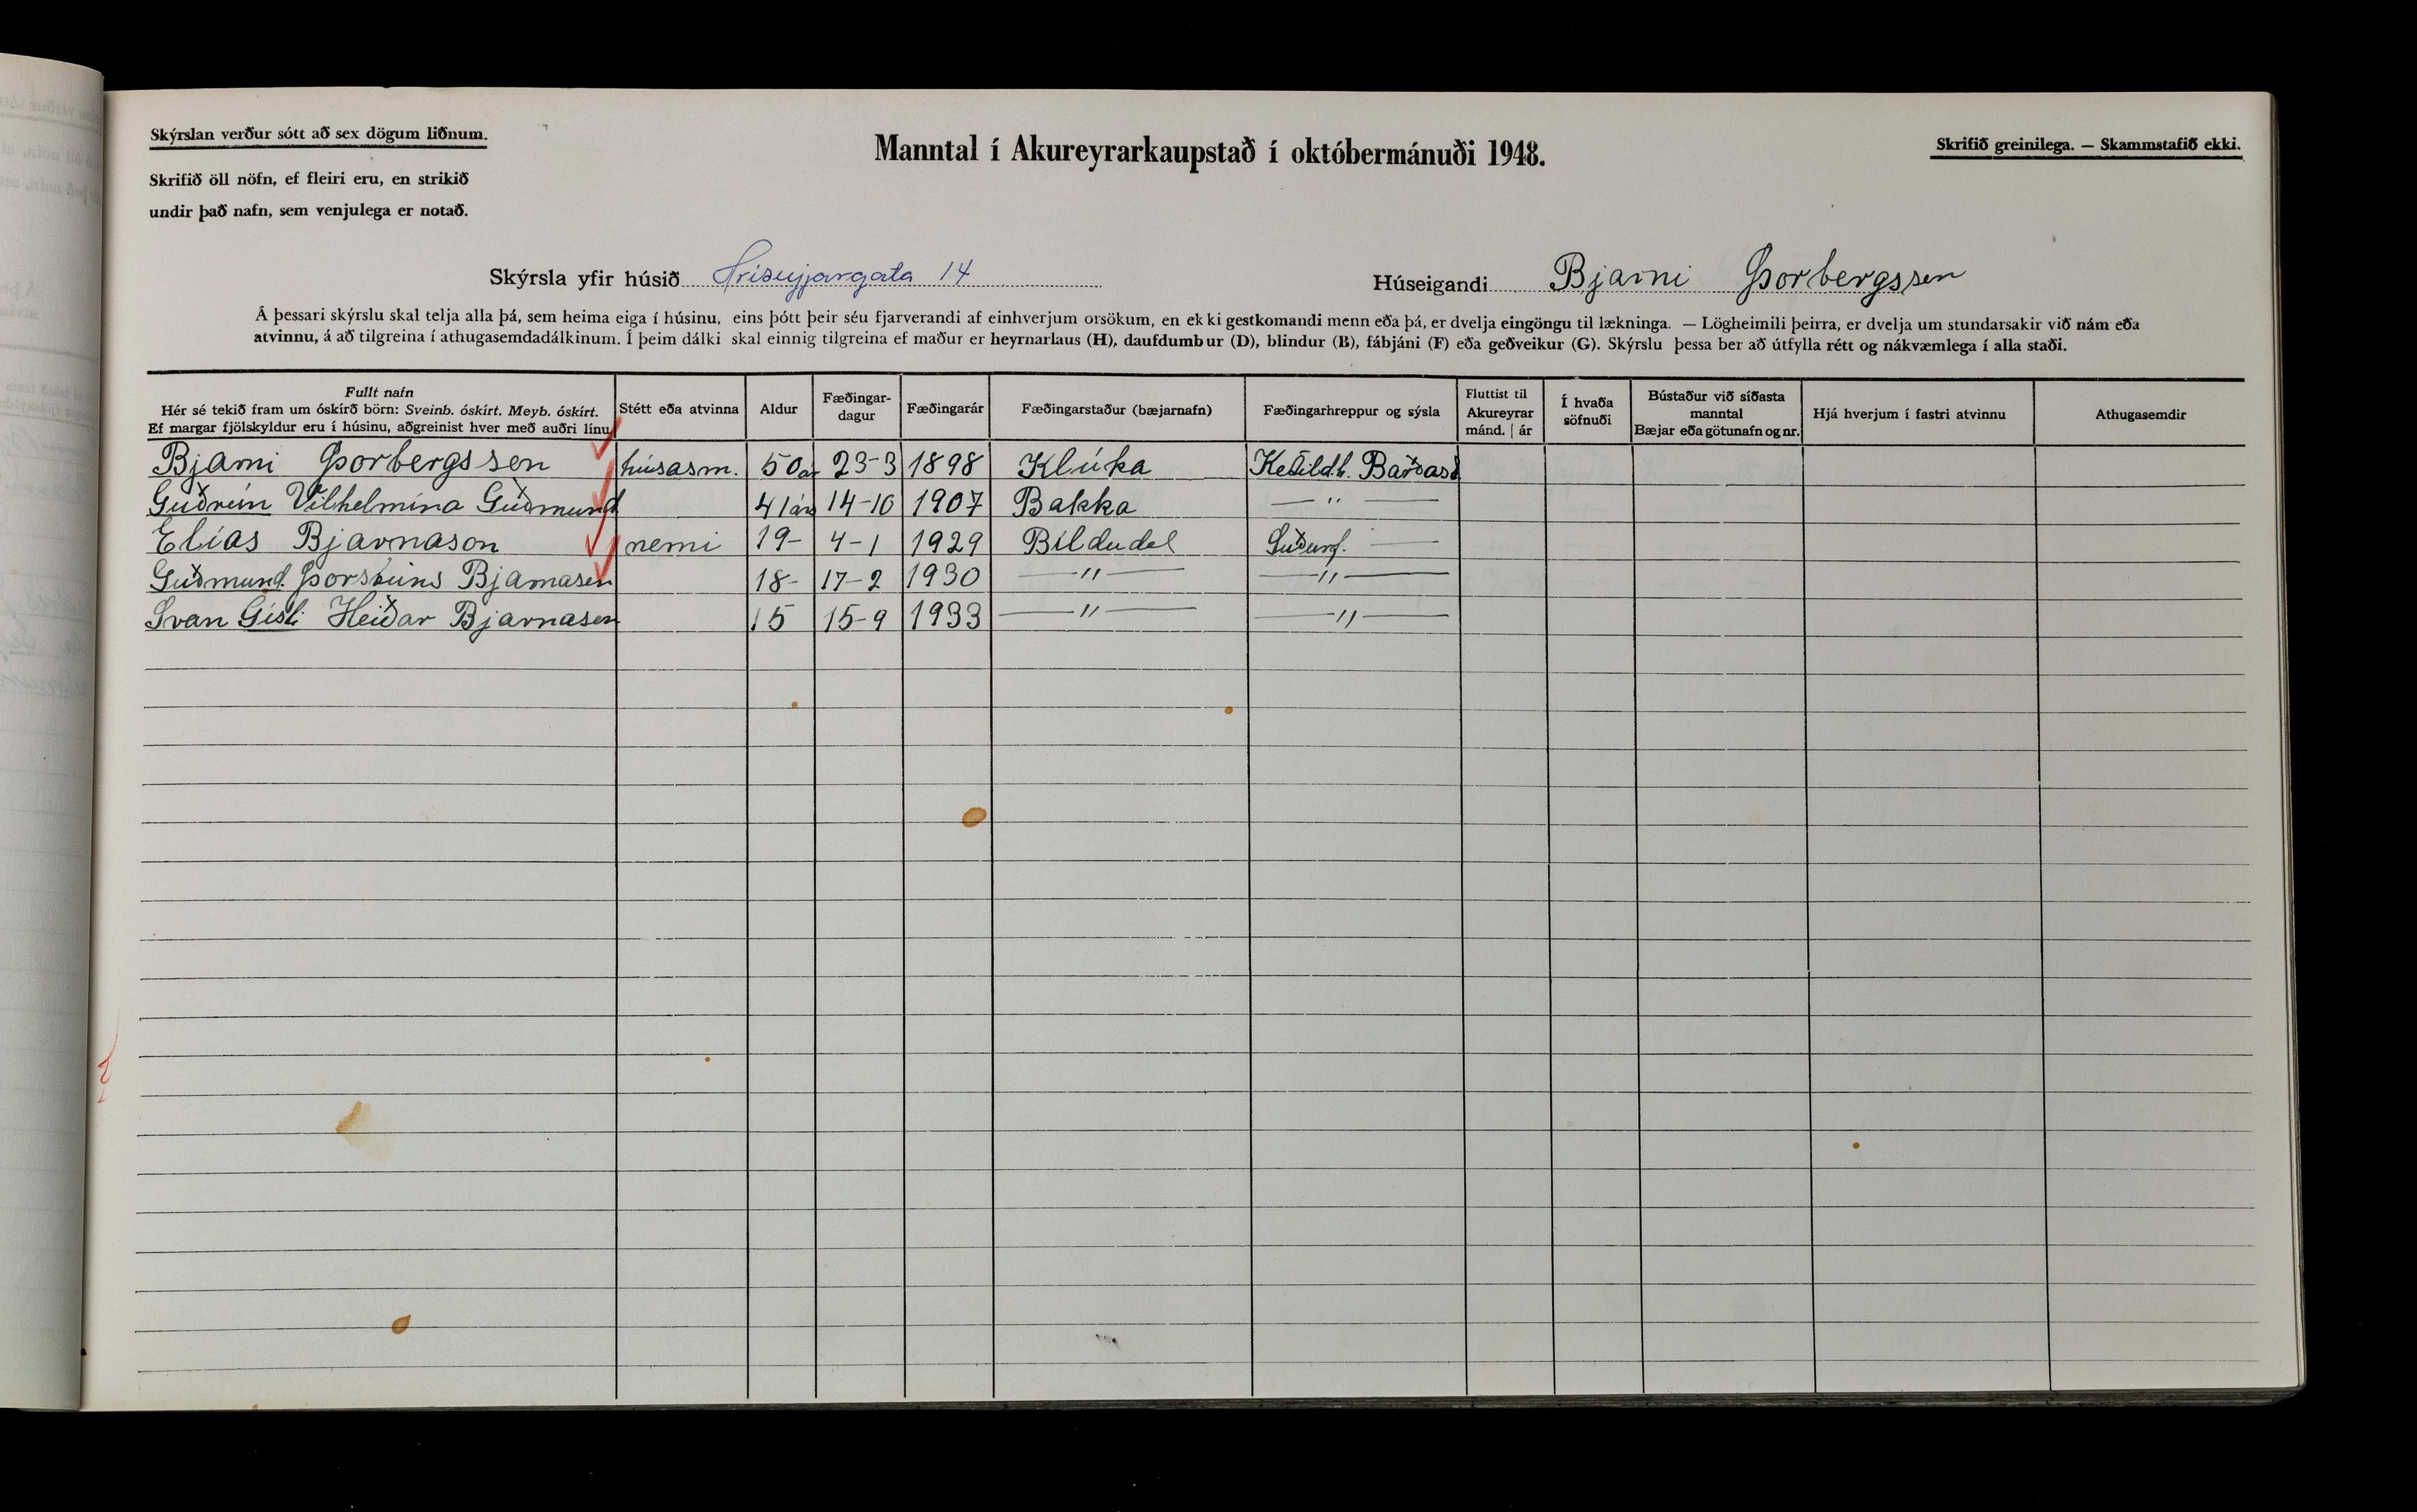 Skýrslan verður sótt að sex dögum liðnum.
Manntal í Akureyrarkaupstað í októbermánuði 1948.
Skrifið greinilega. — Skammstafið ekki.
Skrifið öll nöfn, ef fleiri eru, en strikið
undir það nafn, sem venjulega er notað.
Skýrsla yfir húsið Hríseyjargata 14 Húseigandi Bjarni Þorbergssen
Á þessari skýrslu skal telja alla þá, sem heima eiga í húsinu, eins þótt þeir séu fjarverandi af einhverjum orsökum, en ekki gestkomandi menn eða þá, er dvelja eingöngu til lækninga. — Lögheimili þeirra, er dvelja um stundarsakir við nám eða
atvinnu, á að tilgreina í athugasemdadálkinum. Í þeim dálki skal einnig tilgreina ef maður er heyrnarlaus (H), daufdumbur (D), blindur (B), fábjáni (F) eða geðveikur (G). Skýrslu þessa ber að útfylla rétt og nákvæmlega í alla staði.
Fullt nafn
Hér sé tekið fram um óskírð börn: Sveinb. óskírt. Meyb. óskírt.
Ef margar fjölskyldur eru í húsinu, aðgreinist hver með auðri línu.
Stétt eða atvinna
Aldur
Fæðingar-
dagur
Fæðingarár
Fæðingarstaður (bæjarnafn)
Fæðingarhreppur og sýsla
Fluttist til
Akureyrar
mánd. | ár
Í hvaða
söfnuði
Bústaður við síðasta
manntal
Bæjar eða götunafn og nr.
Hjá hverjum í fastri atvinnu
Athugasemdir
Bjarni Þorbergssen húsasm. 50 ár 23-3 1898 Klúka Ketildh. Barðas
Guðrún Vilhelmína Guðmund 41 árs 14-10 1907 Bakka — " —
Elías Bjarnason nemi 19- 4-1 1929 Bíldudal Suðurf. —
Guðmund. Þorsteins Bjarnasen 18- 17-2 1930 — " — — " —
Svan Gísli Heiðar Bjarnasen 15 15-9 1933 — " — — " —